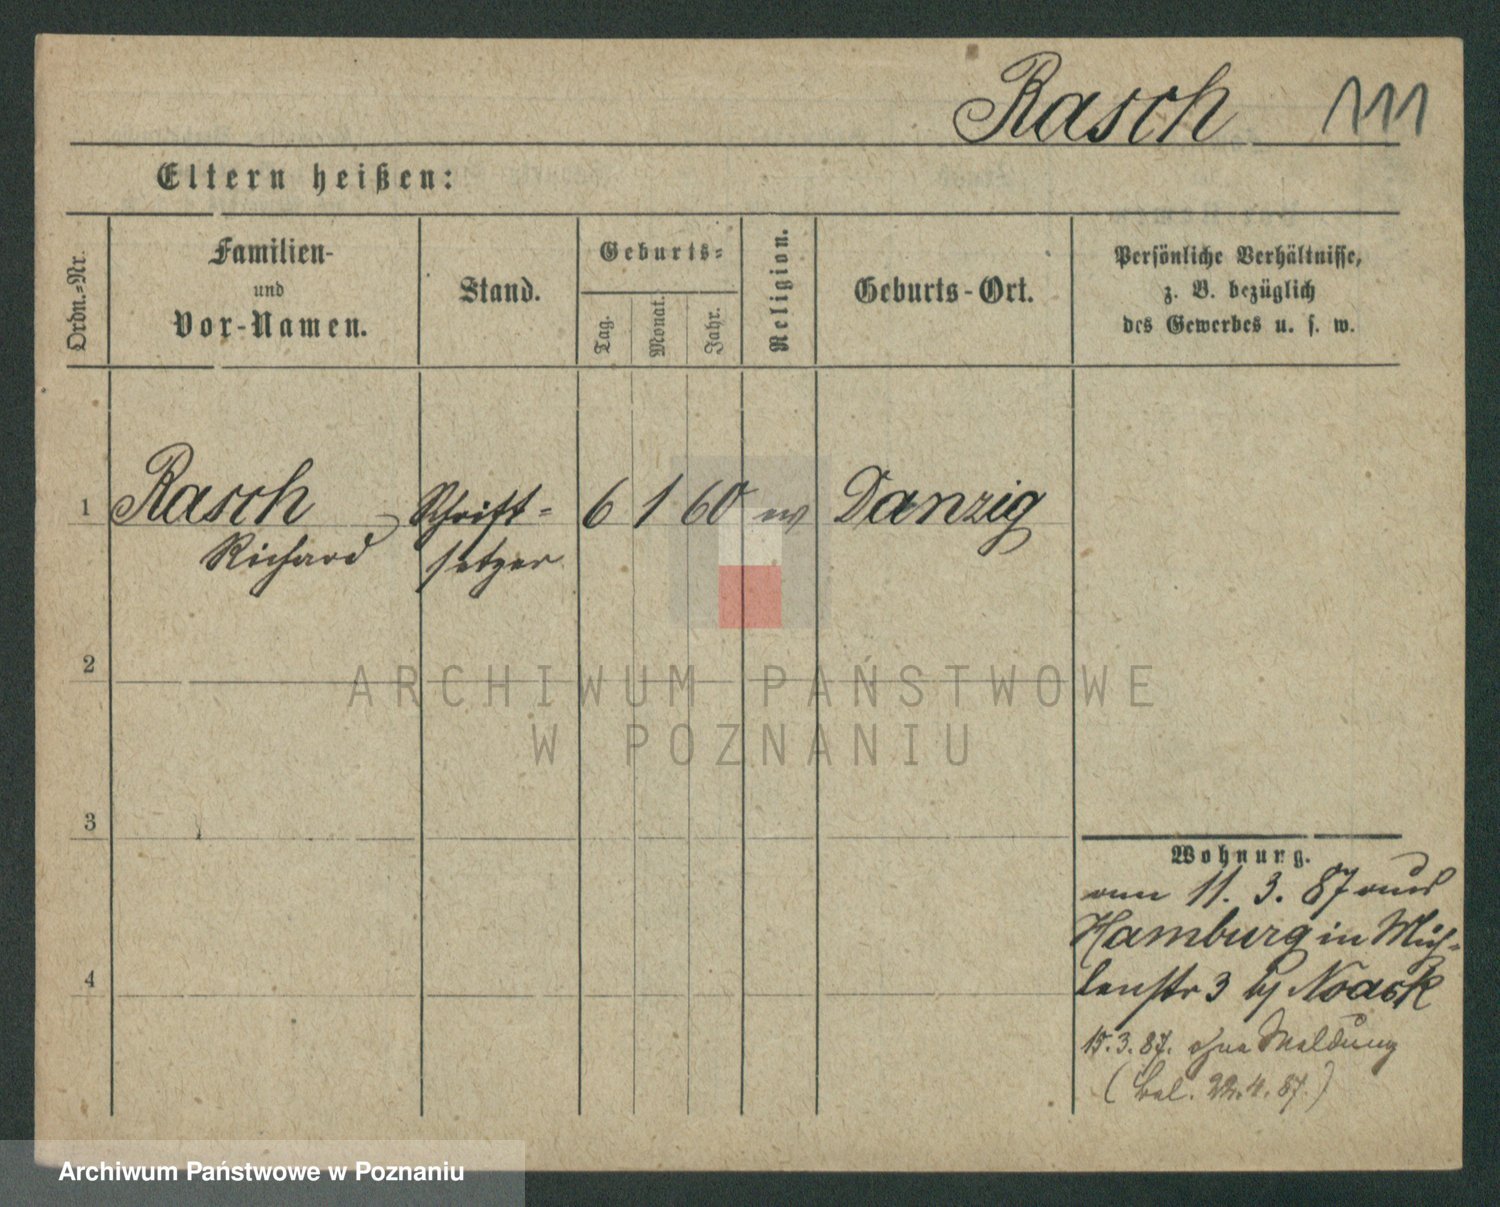 Rasch 111
Eltern heißen:
Ordn.-Nr.
Familien-
und
Vor-Namen.
Stand.
Geburts-
Tag.
Monat.
Jahr.
Religion.
Geburts-Ort.
Persönliche Verhältnisse,
z. B. bezüglich
des Gewerbes u. s. w.
1 Rasch Schrift- 6 1 60 ev Danzig
Richard setzer
2
3
4
Wohnung.
11. 3. 87
Hamburg in Müh-
lenstr 3 bj Noack
15.3.87. ohne Meldung
( 22.4.87.)
ARCHIWUM PAŃSTWOWE
W POZNANIU
Archiwum Państwowe w Poznaniu